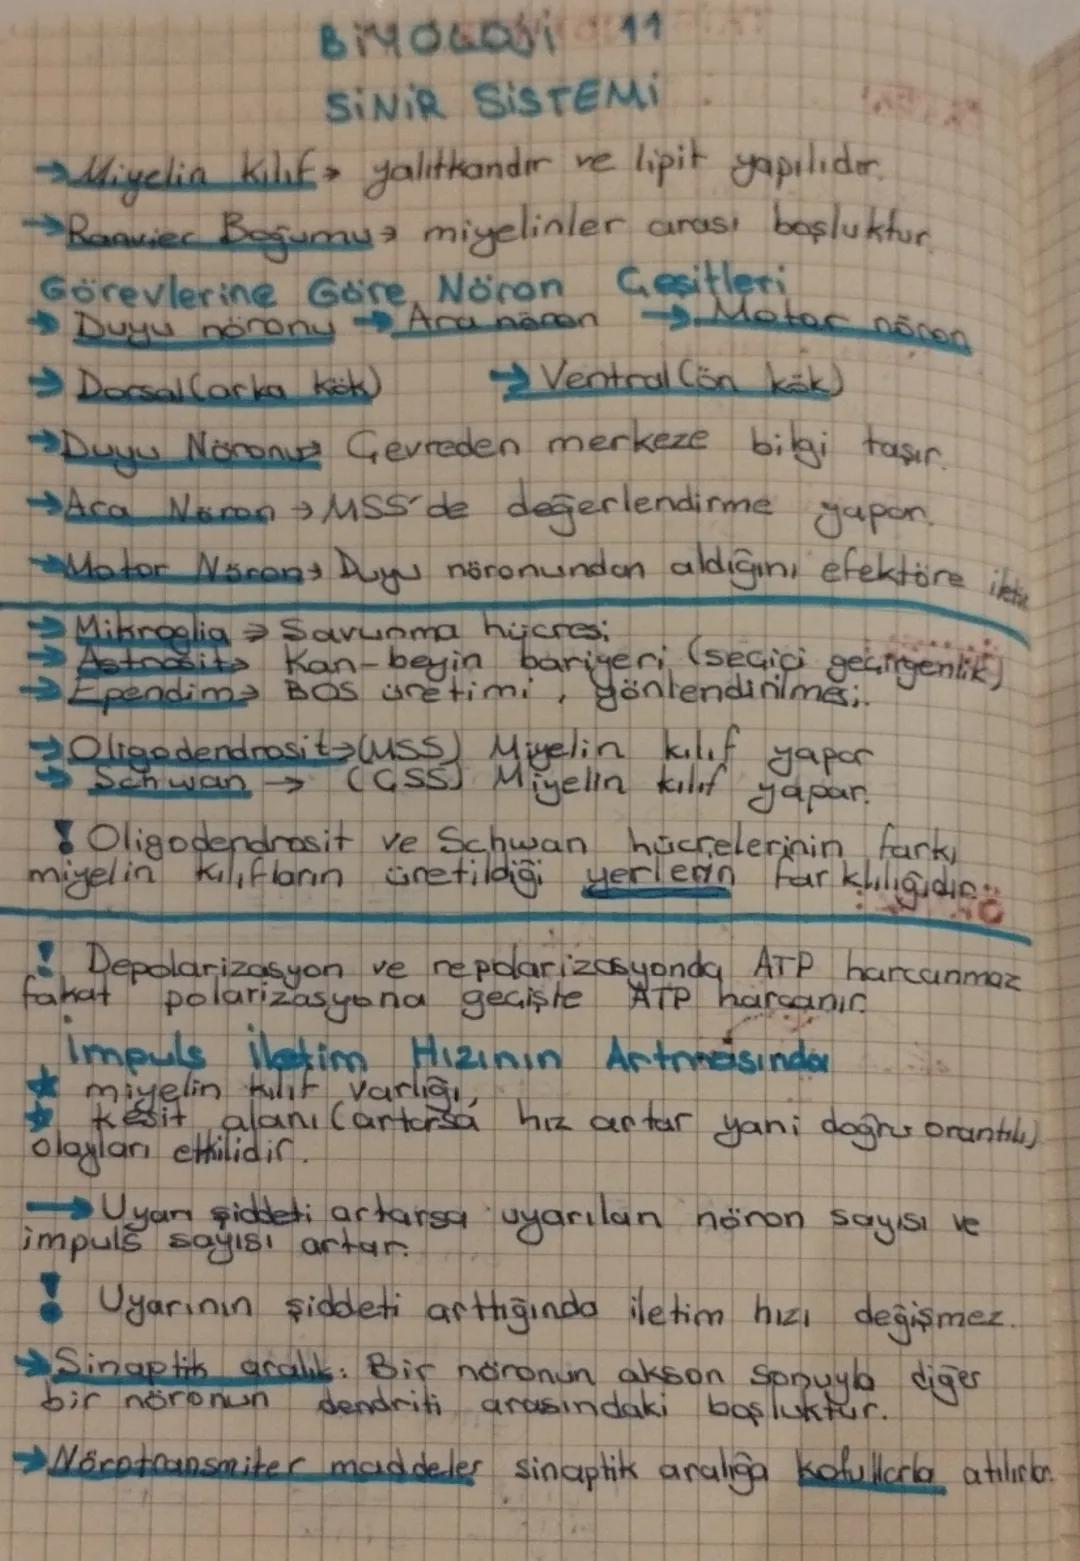 BİYOLOJİ 11
SİNİR SİSTEMİ
→ Miyelin Kılıf → yalıtkandır ve lipit yapılıdır.
→ Ranvier Boğumu → miyelinler arası boşluktur.
Görevlerine Göre Nöron Çeşitleri
→ Duyu nöronu → Ara nöron → Motor nöron
→ Dorsal (arka kök) → Ventral (ön kök)
→ Duyu Nöronu → Çevreden merkeze bilgi taşır.
→ Ara Nöron → MSS'de değerlendirme yapar.
→ Motor Nöron → Duyu nöronundan aldığını efektöre iletir
→ Mikroglia → Savunma hücresi
→ Astrosit → Kan-beyin bariyeri (seçici geçirgenlik)
→ Ependim → BOS üretimi, yönlendirilmesi.
→ Oligodendrosit → (MSS) Miyelin kılıf yapar
→ Schwan → (ÇSS) Miyelin kılıf yapar.
! Oligodendrosit ve Schwan hücrelerinin farkı
miyelin kılıfların üretildiği yerlerin farklılığıdır.
! Depolarizasyon ve repolarizasyonda ATP harcanmaz
fakat polarizasyona geçişte ATP harcanır.
İmpuls İletim Hızının Artmasında
★ miyelin kılıf varlığı,
★ kesit alanı (artarsa hız artar yani doğru orantılı)
olayları etkilidir.
→ Uyarı şiddeti artarsa uyarılan nöron sayısı ve
impuls sayısı artar.
! Uyarının şiddeti arttığında iletim hızı değişmez.
→ Sinaptik aralık: Bir nöronun akson sonuyla diğer
bir nöronun dendriti arasındaki boşluktur.
→ Nörotransmiter maddeler sinaptik aralığa kofullarla atılırlar.